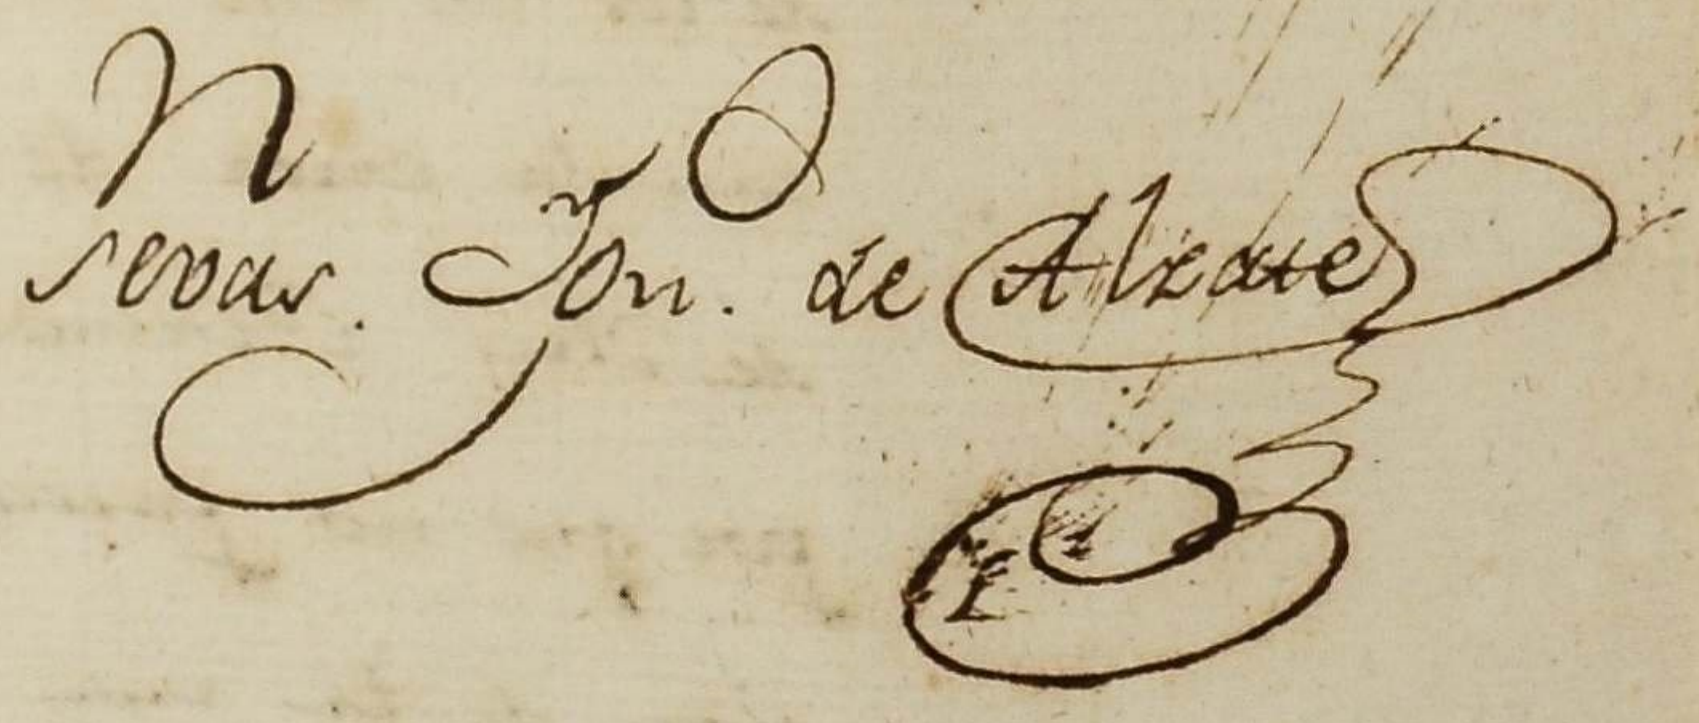 sevas. Jon. de Alzate